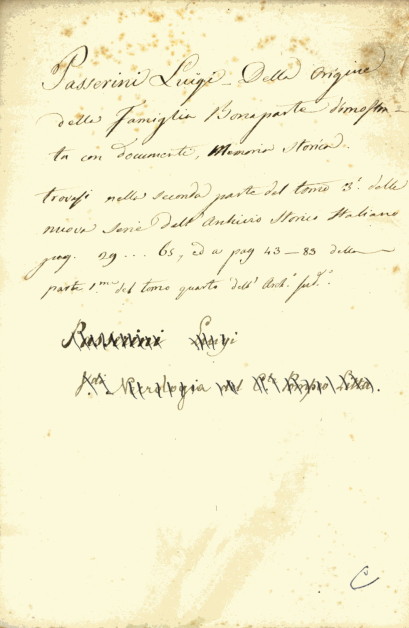 Passerini Luigi - Della origine
della Famiglia Bonaparte dimostra-
ta con documenti, Memoria Storica.
trovasi nella seconda parte del tomo 3.º della
nuova serie dell'Archivio Storico Italiano
pag. 29 ... 65, ed a pag 43 - 83 della
parte 1.ma del tomo quarto dell' Arch.º sud.º.
Passerini Luigi
Necrologia
C